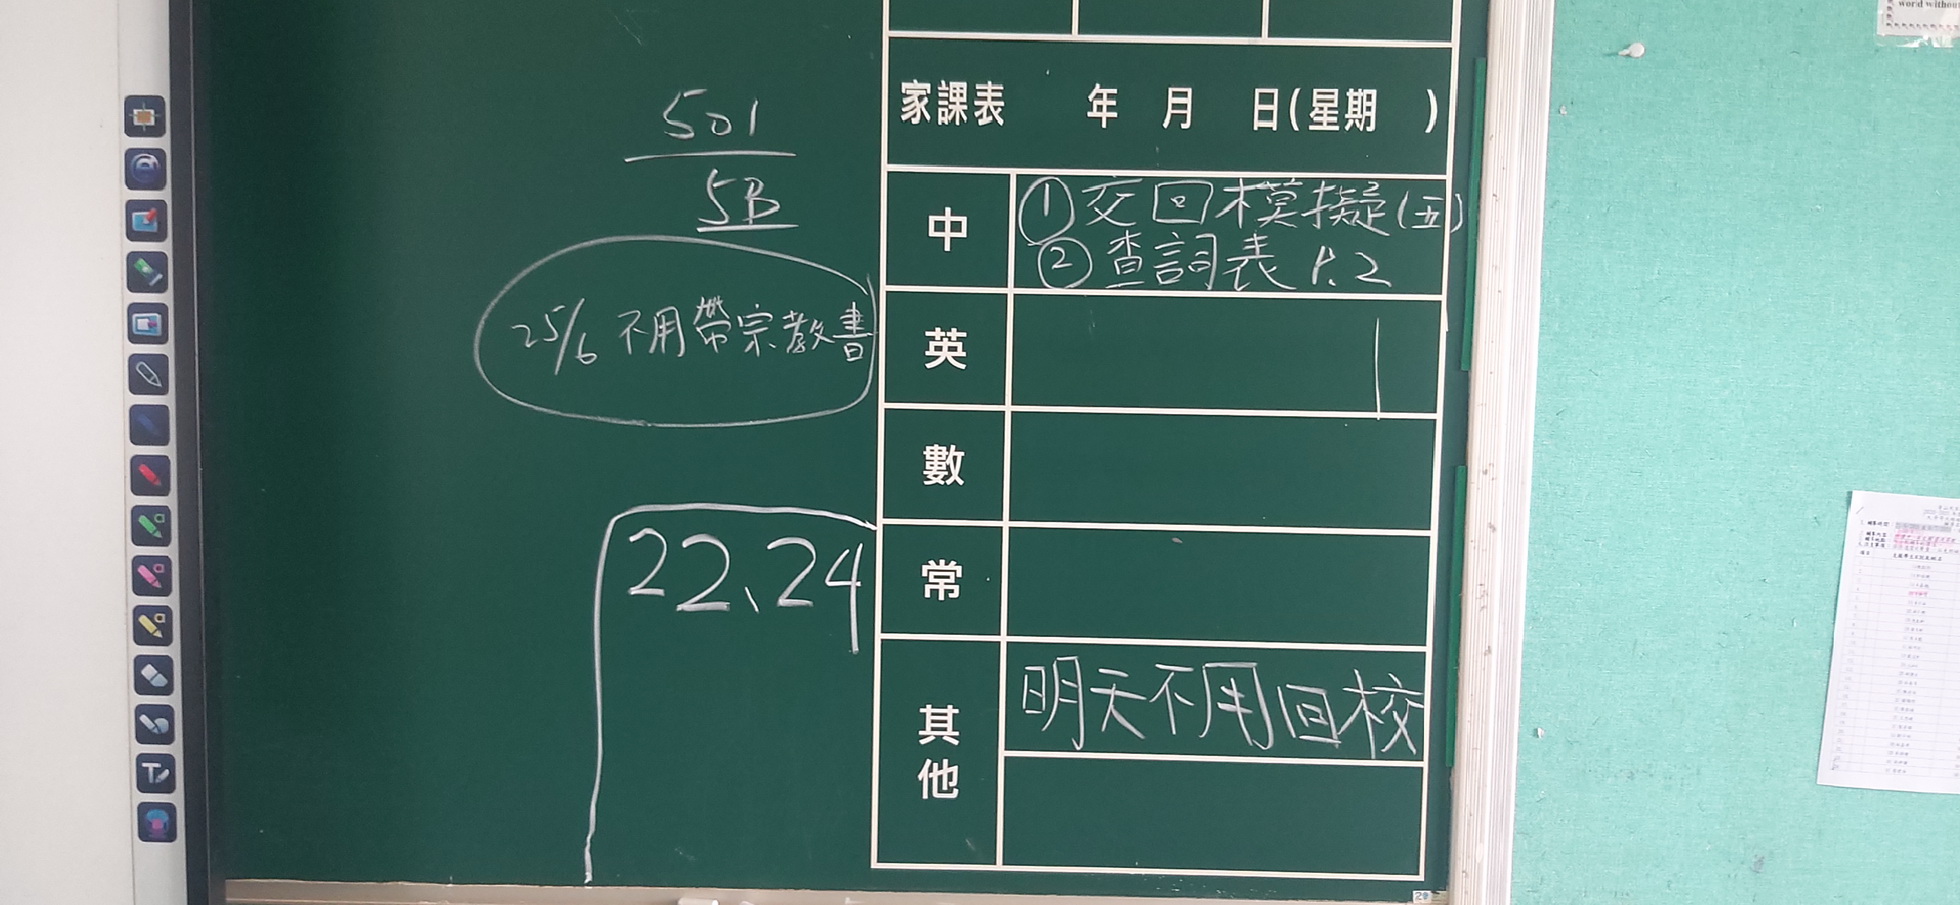 world without
501
5B
25/6 不用帶宗教書
22、24
家課表 年 月 日(星期 )
中
①交回模擬(五)
②查詞表 P.2
英
數
常
其他
明天不用回校